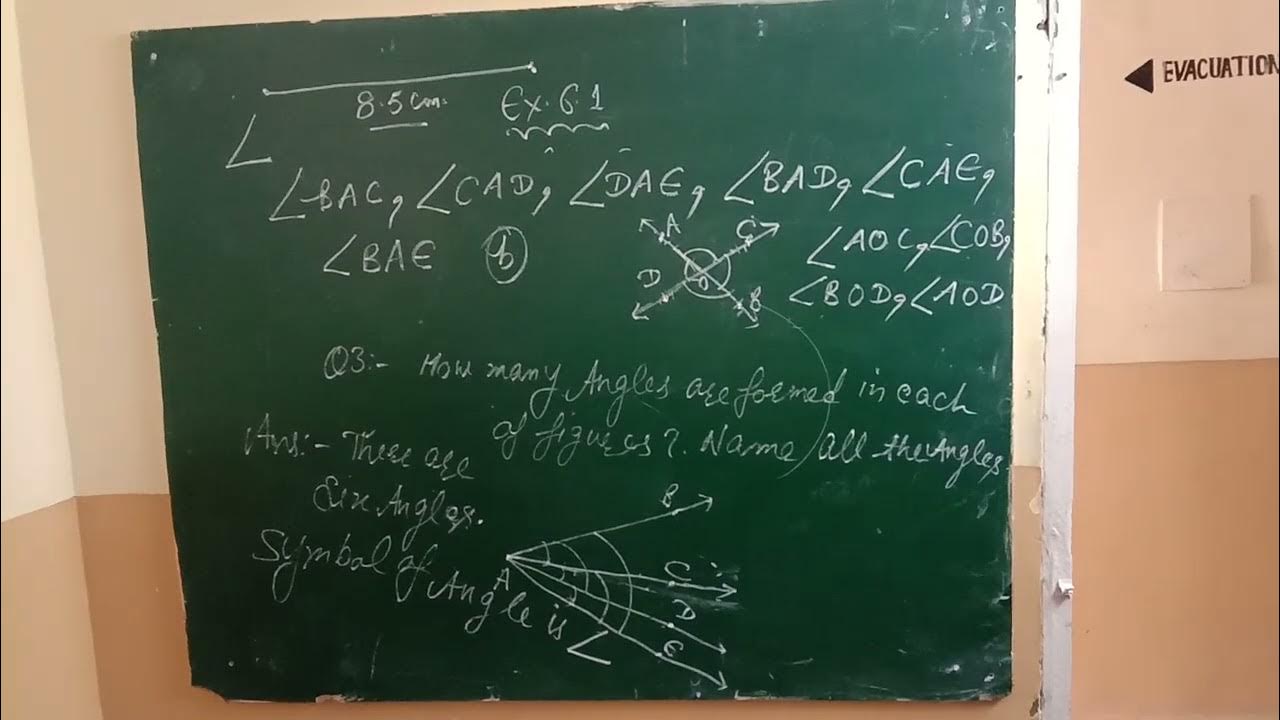 8.5 cm.
Ex. 6.1
∠
∠BAC, ∠CAD, ∠DAE, ∠BAD, ∠CAE,
∠BAE
b
A
C
D
O
B
∠AOC, ∠COB,
∠BOD, ∠AOD
Q3:- How many Angles are formed in each
of figures? Name all the Angles.
Ans:- There are
Six Angles.
Symbol of
Angle is ∠
B
A
C
D
E
EVACUATION